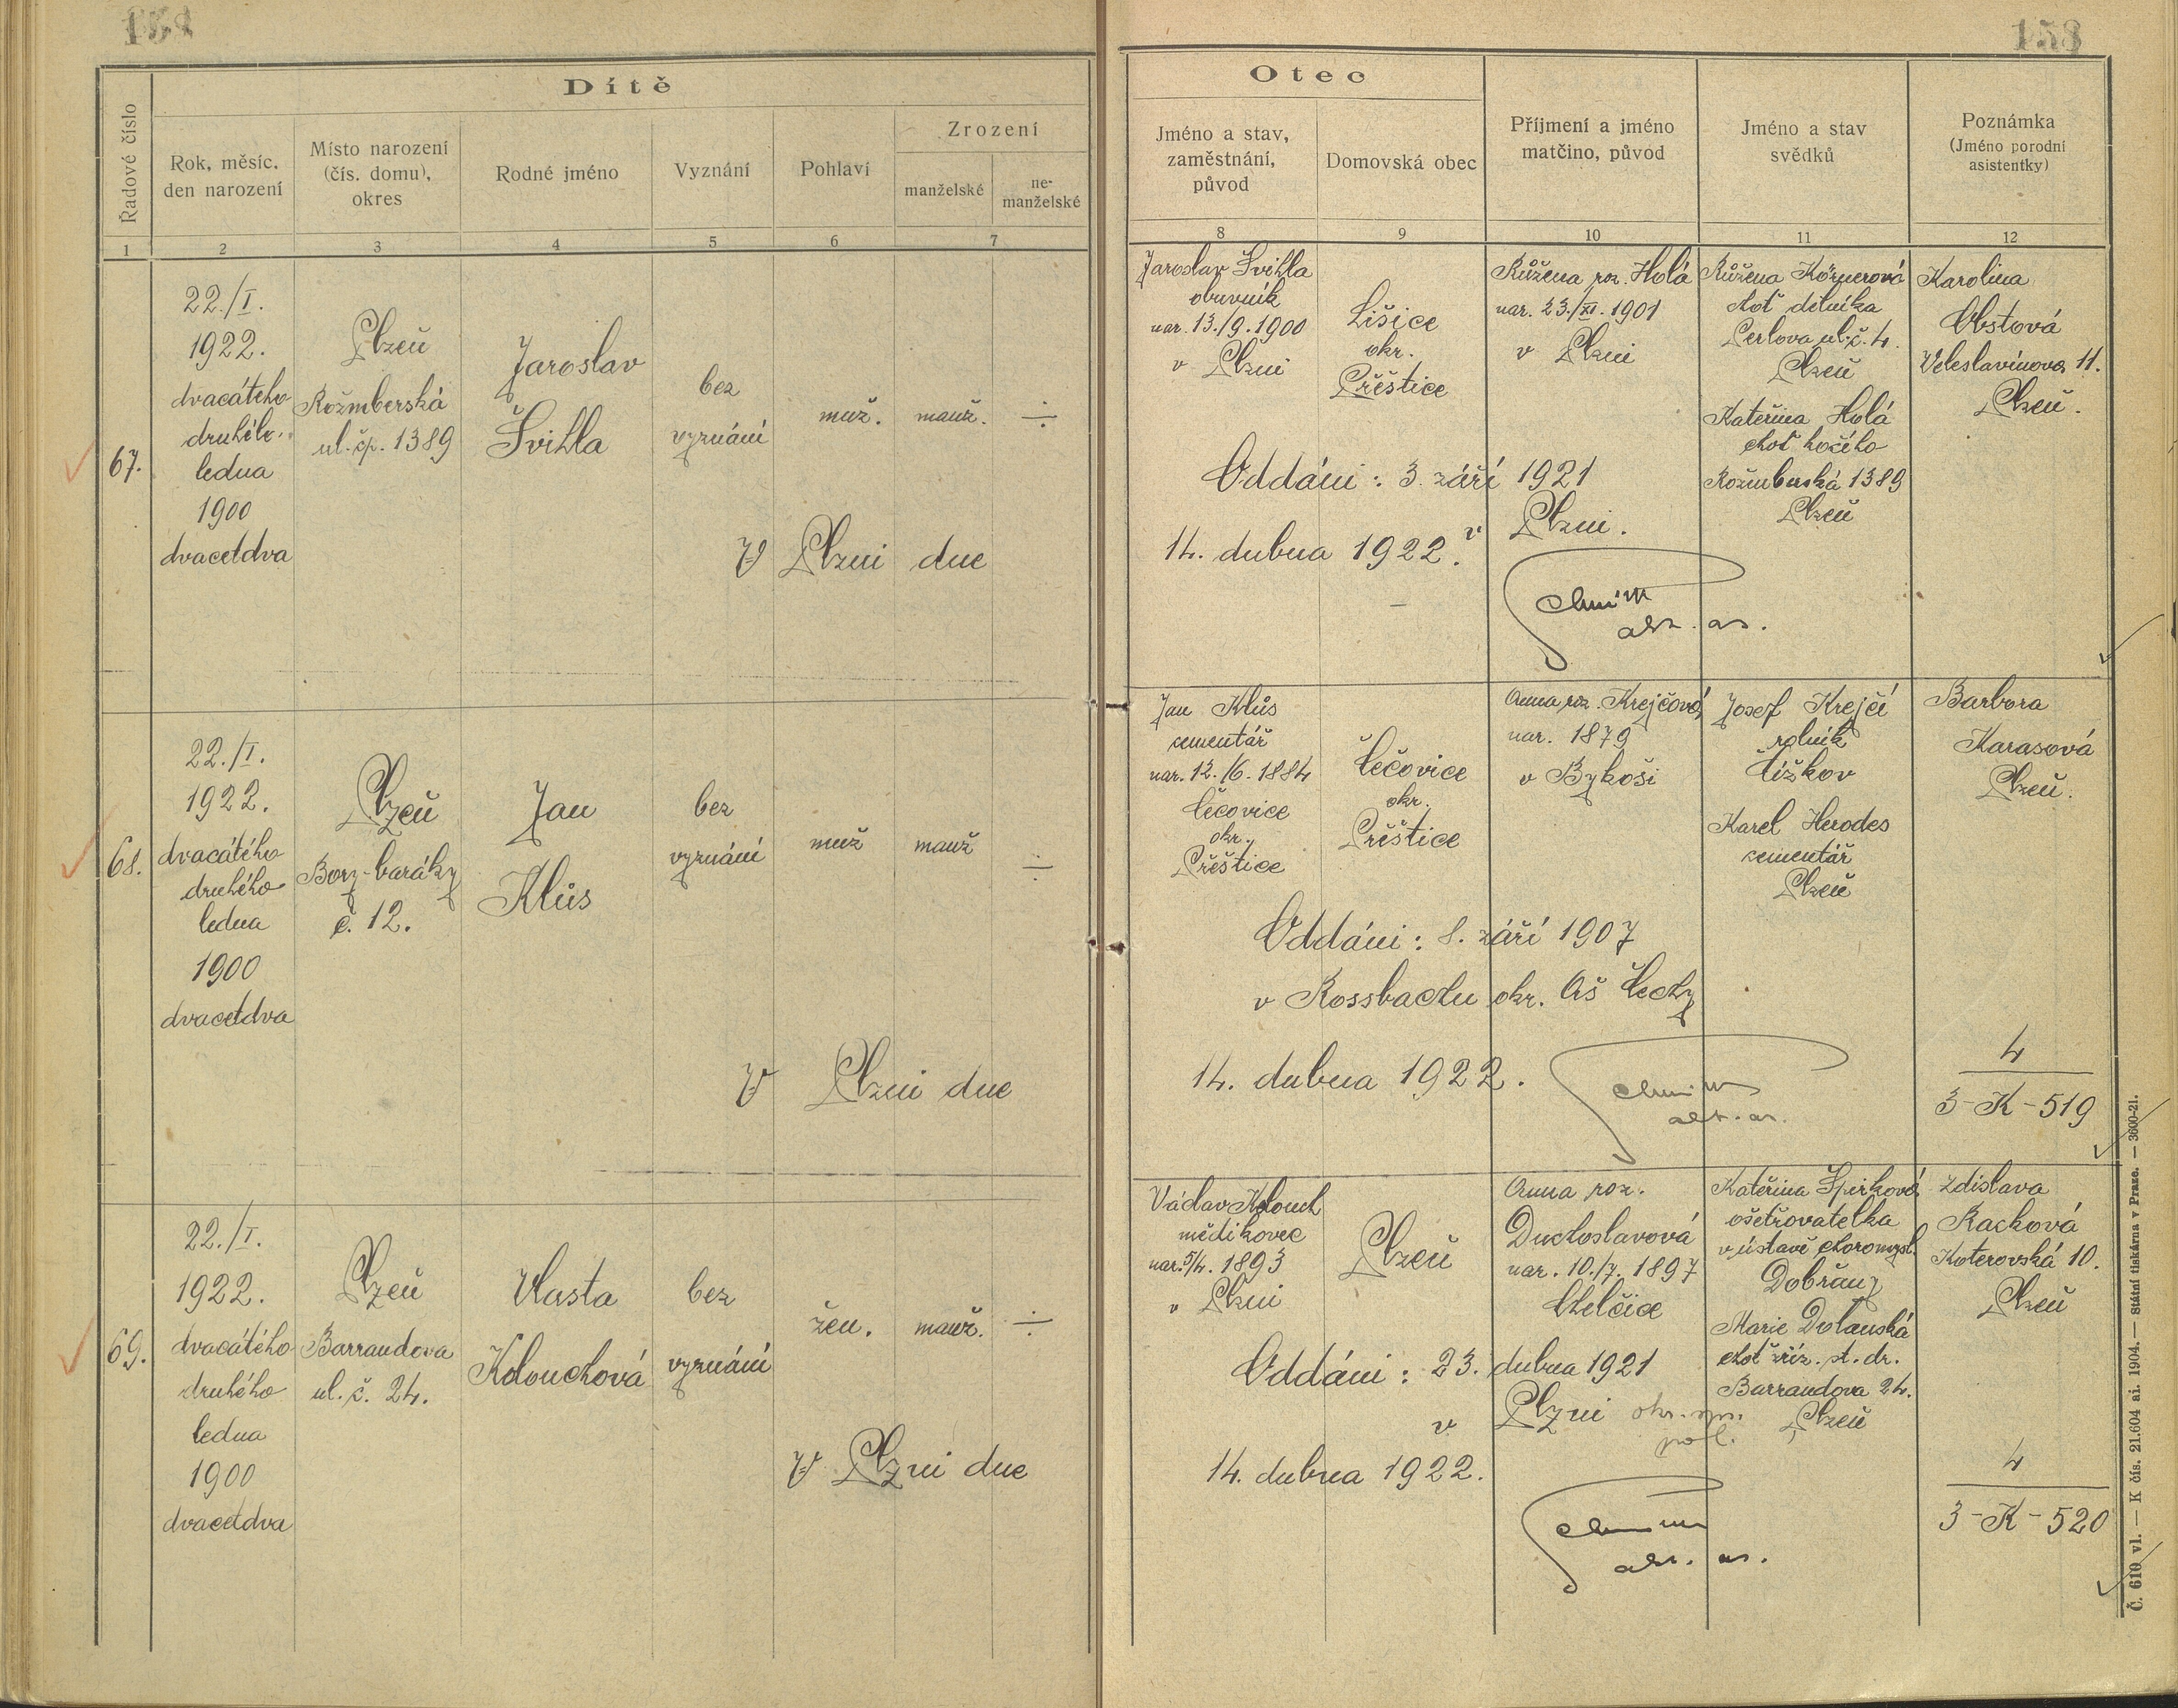 158
Dítě
Řadové číslo
Rok, měsíc,
den narození
Místo narození
(čís. domu),
okres
Rodné jméno
Vyznání
Pohlaví
Zrození
manželské
ne-
manželské
1 2 3 4 5 6 7
Otec
Jméno a stav,
zaměstnání,
původ
Domovská obec
Příjmení a jméno
matčino, původ
Jméno a stav
svědků
Poznámka
(Jméno porodní
asistentky)
8 9 10 11 12
67.
22./I.
1922.
dvacátého
druhého
ledna
1900
dvacetdva
Plzeň
Rožmberská
ul. čp. 1389
Jaroslav
Švihla
bez
vyznání
muž.
manž.
÷
Jaroslav Švihla
obuvník
nar. 13./9. 1900
v Plzni
Lišice
okr.
Přěštice
Růžena roz. Holá
nar. 23./XI. 1901
v Plzni
Růžena Körnerová
choť dělníka
Perlova ul. č. 4.
Plzeň
Kateřina Holá
choť kočího
Rožmberská 1389
Plzeň
Karolina
Obstová
Veleslavínova 11.
Plzeň.
Oddáni: 3. září 1921
v Plzni.
V Plzni dne 14. dubna 1922.
68.
22./I.
1922.
dvacátého
druhého
ledna
1900
dvacetdva
Plzeň
Bory-baráky
č. 12.
Jan
Klůs
bez
vyznání
muž
manž
÷
Jan Klůs
cementář
nar. 12./6. 1884
Čečovice
okr.
Přěštice
Čečovice
okr.
Přěštice
Anna roz. Krejčová
nar. 1879
v Bykoši
Josef Krejčí
rolník
Čížkov
Karel Herodes
cementář
Plzeň
Barbora
Karasová
Plzeň.
Oddáni: 8. září 1907
v Rossbachu okr. Aš Čechy
V Plzni dne 14. dubna 1922.
4
3-K-519
69.
22./I.
1922.
dvacátého
druhého
ledna
1900
dvacetdva
Plzeň
Barrandova
ul. č. 24.
Vlasta
Kolouchová
bez
vyznání
žen.
manž.
÷
Václav Kolouch
mědikovec
nar. 5/4. 1893
v Plzni
Plzeň
Anna roz.
Duchoslavová
nar. 10./7. 1897
Chelčice
Kateřina Špirková
ošetřovatelka
v ústavě choromysl.
Dobřany
Marie Dolanská
choť zříz. st. dr.
Barrandova 24.
Plzeň
Zdislava
Racková
Koterovská 10.
Plzeň
Oddáni: 23. dubna 1921
v Plzni okr. spr.
pol.
V Plzni dne 14. dubna 1922.
4
3-K-520
Č. 610 vl. — K čís. 21.604 ai. 1904. — Státní tiskárna v Praze. — 3600-21.